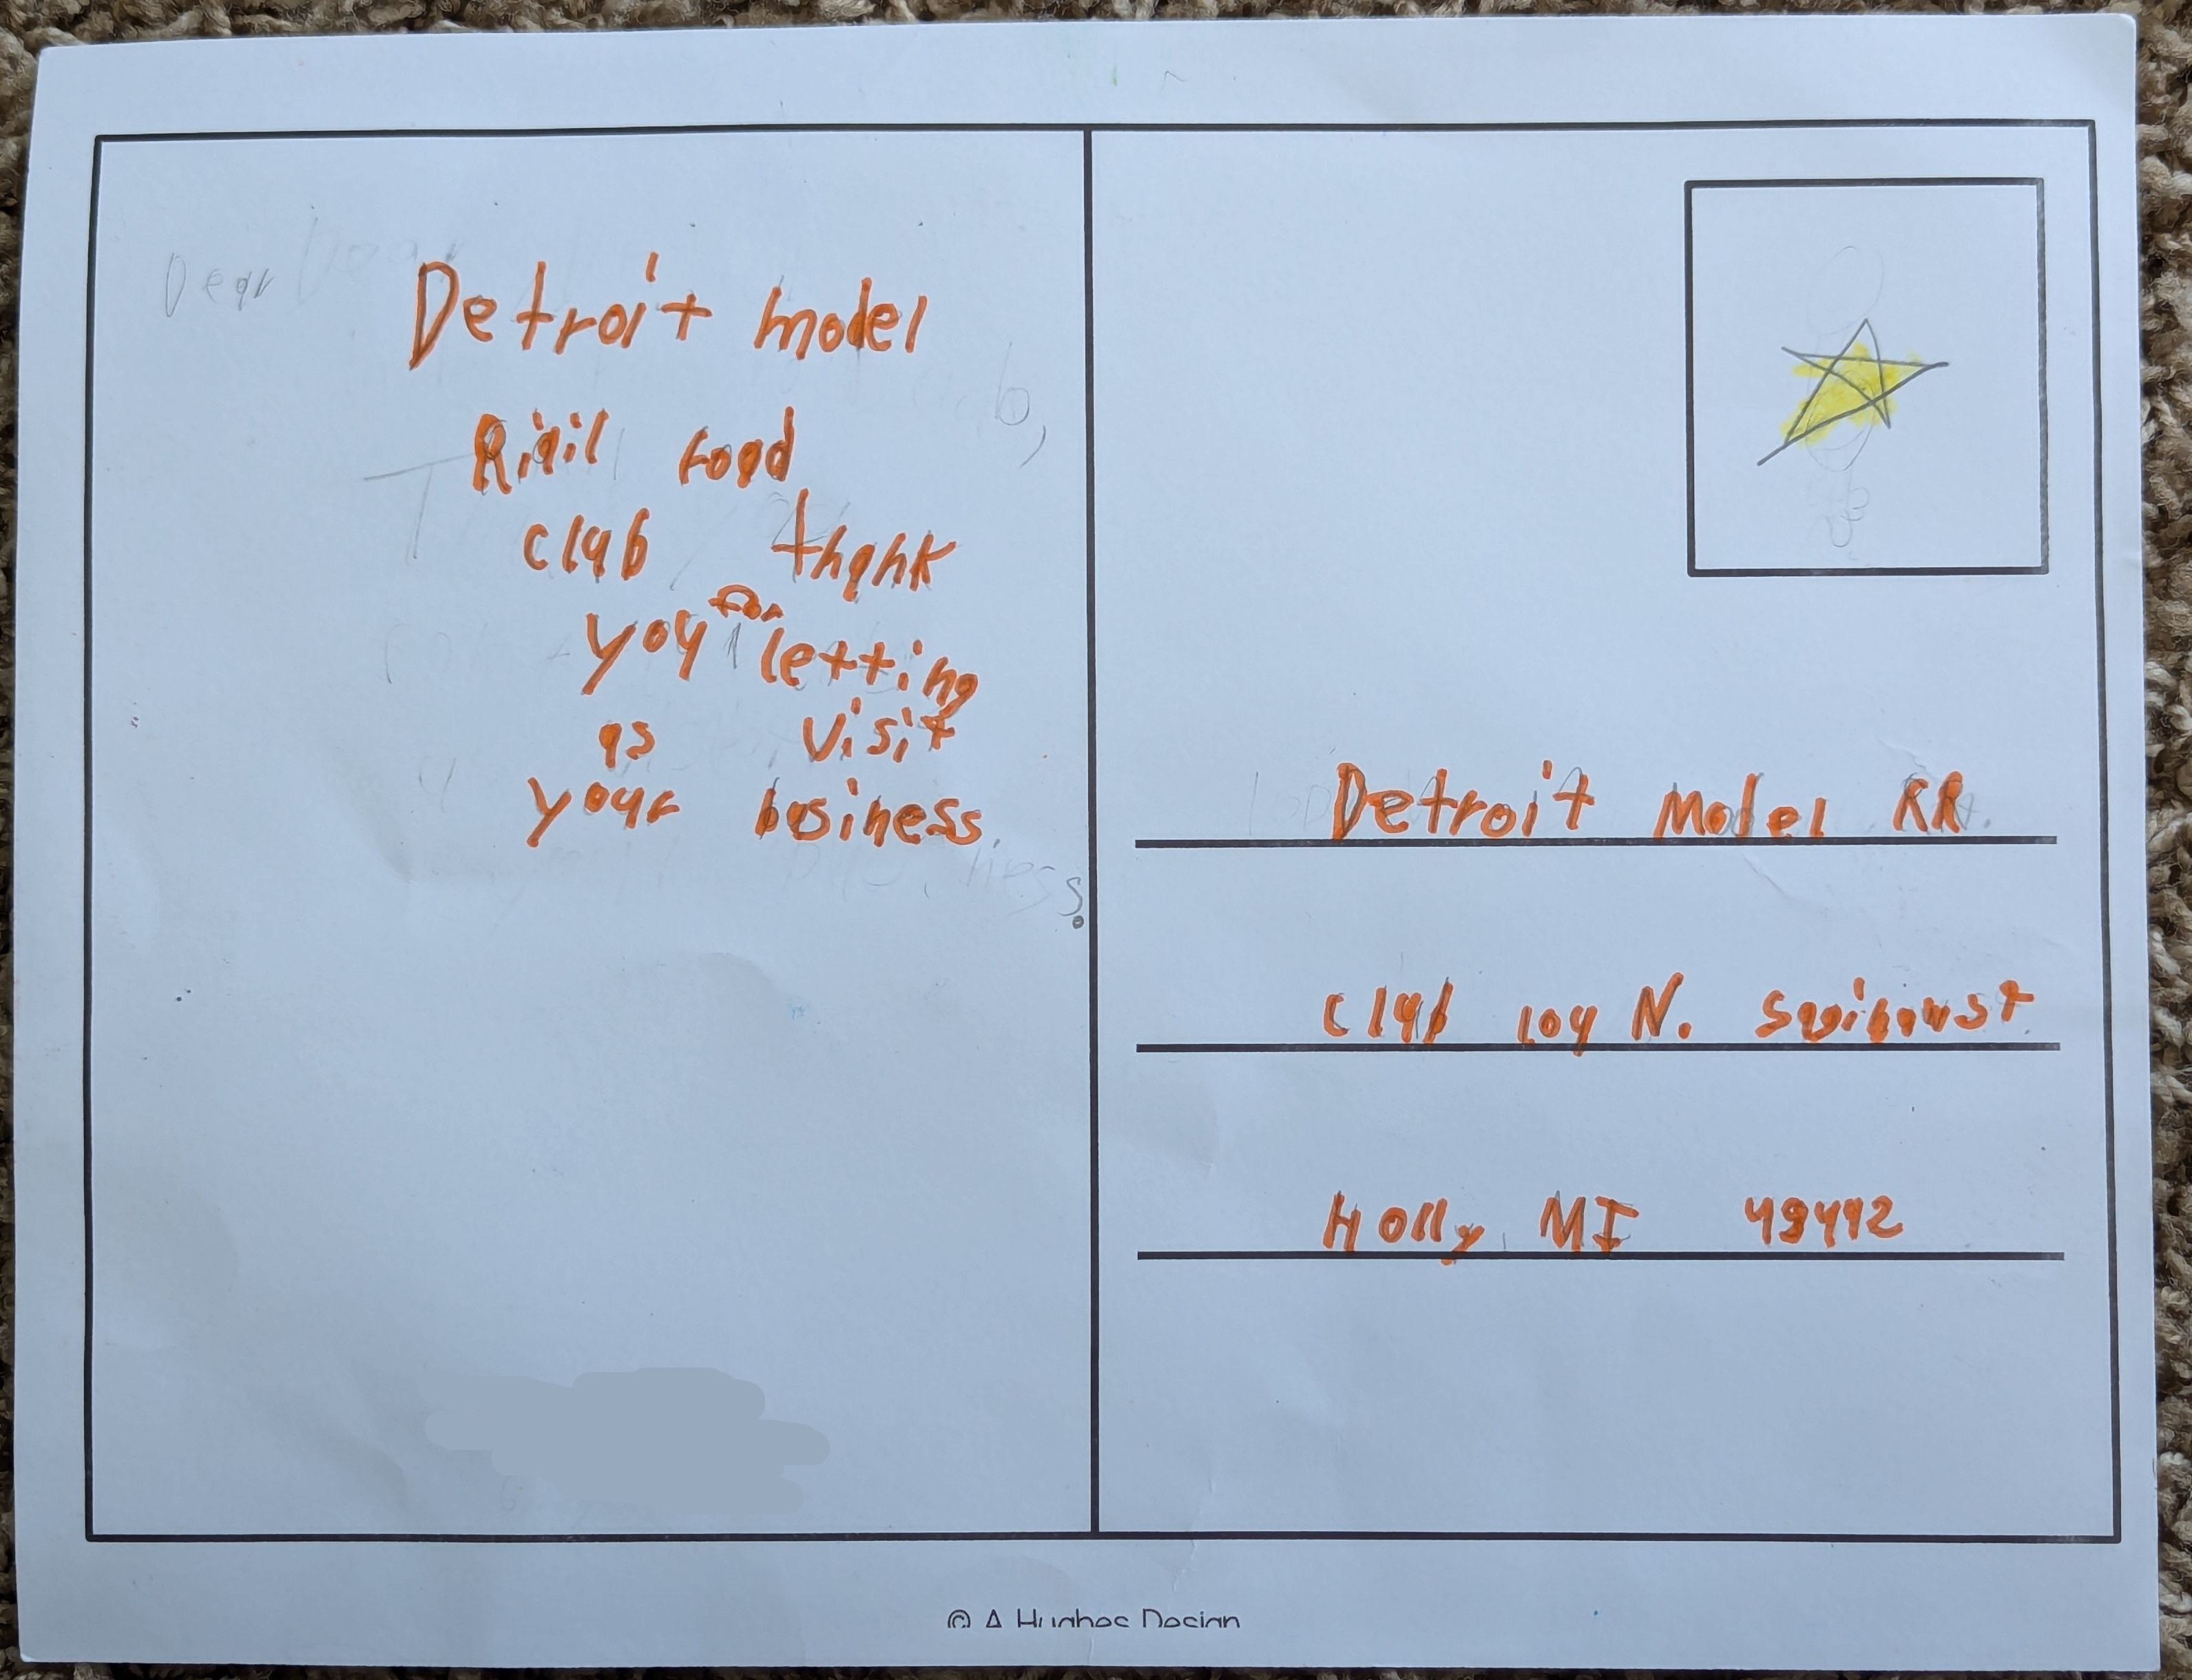 Dear
Detroit model
Riail road
club thank
you for letting
us visit
your business
Detroit Model RR
Club 104 N.
Holly MI 48442
© A Hughes Design